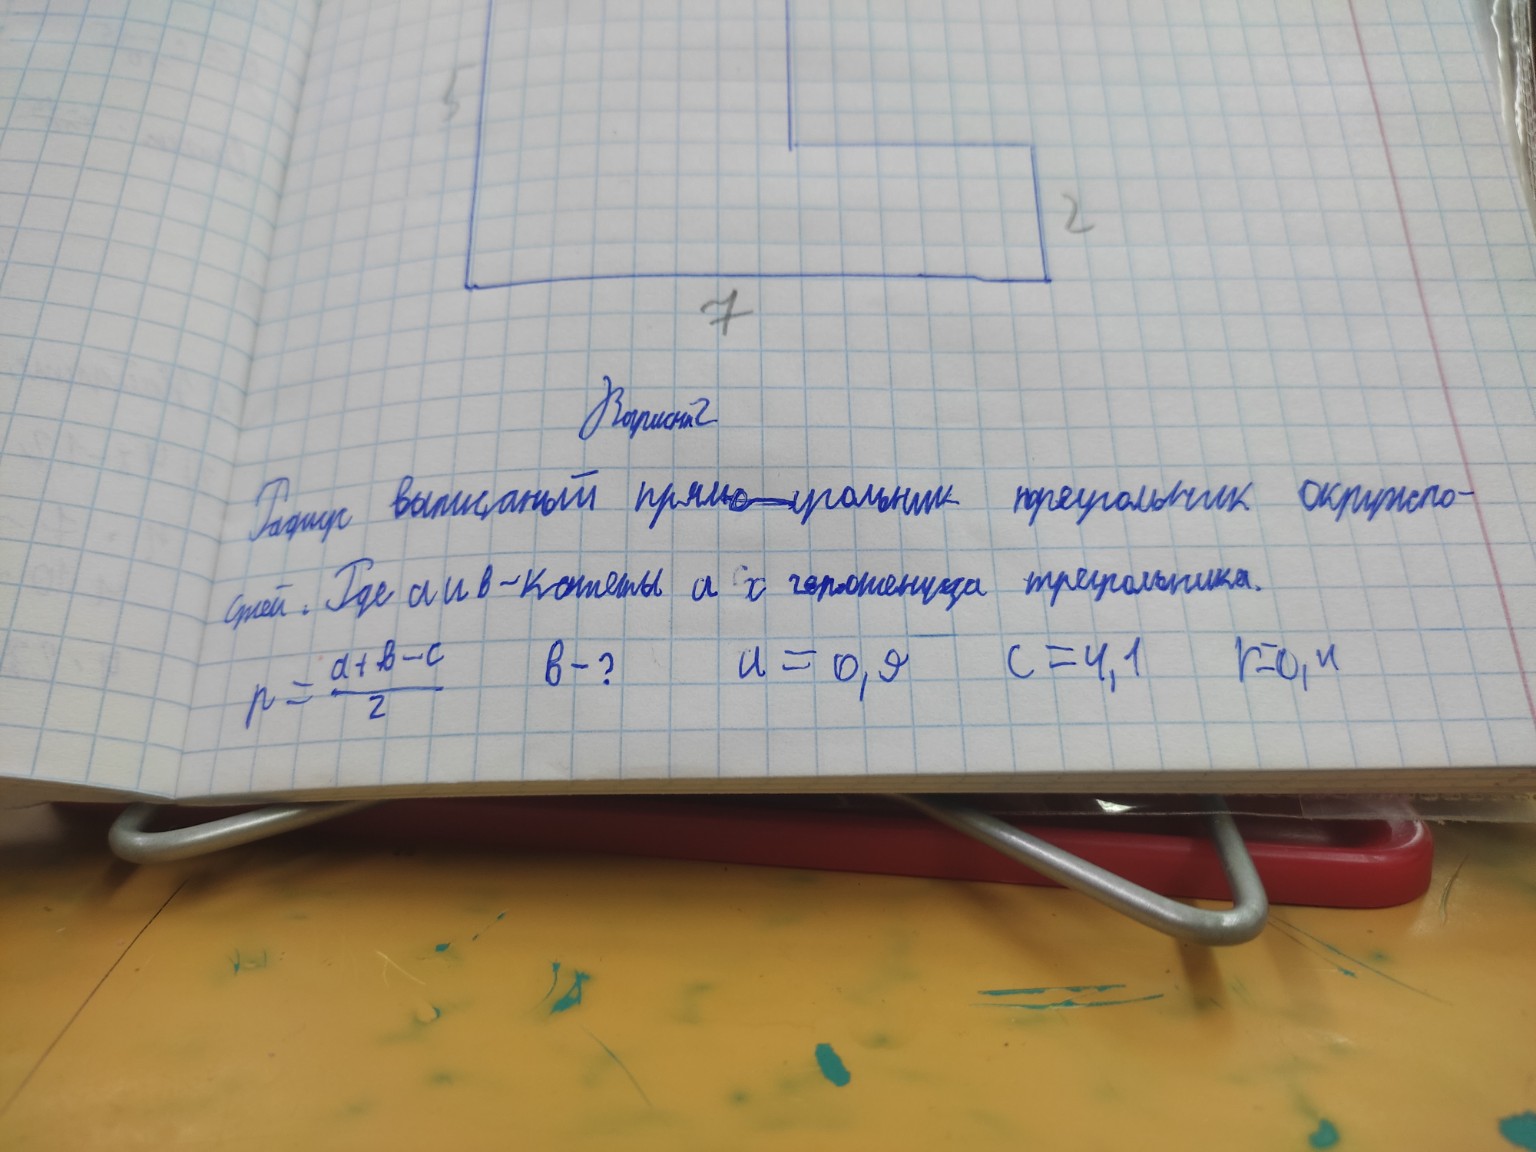 5
2
7
Вариант 2
Радиус вписаный прямо-угольник треугольник окружно-
стей. Где a и b - катеты а c гипотенуза треугольника.
r = a+b-c / 2 b-? a = 0,9 c = 4,1 r=0,4